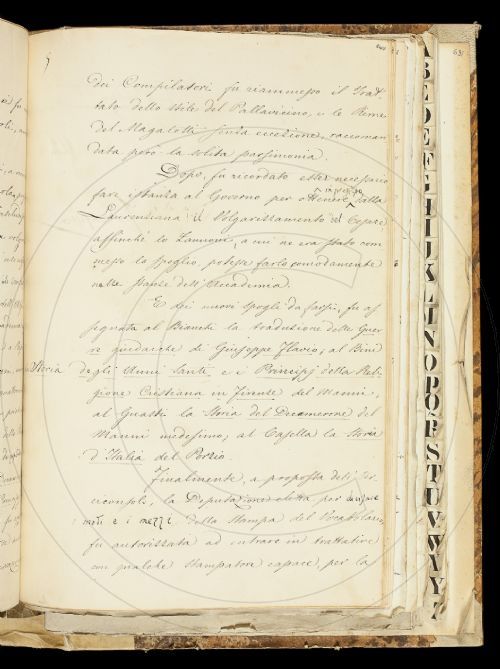 640
691
dei Compilatori fu riammesso il Trat-
tato dello stile del Pallavicino, e le Rime
del Magalotti senza eccezione, raccoman
data però la solita parsimonia.
Dopo, fu ricordato esser necessario
fare istanza al Governo per ottenere dalla
in prestito
Laurenziana il Volgarizzamento del Cesare
affinchè lo Zannoni, a cui ne era stato com
messo lo spoglio, potesse farlo comodamente
nelle stanze dell'Accademia.
E dei nuovi spogli da farsi, fu as
segnata al Bianchi la traduzione delle Guer
re giudaiche di Giuseppe Flavio; al Bind
Storia
degli Anni Santi e i Principj della Reli
gione Cristiana in Firenze del Manni;
al Guasti la Storia del Decamerone del
Manni medesimo; al Casella la Storia
d'Italia del Porzio.
Finalmente, a proposta dell'Ar
ciconsolo, la Deputazione eletta per
modi e i mezzi della stampa del Vocabolario,
fu autorizzata ad entrare in trattative
con qualche stampatore capace, per la
A
B
C
D
E
F
G
H
I
J
K
L
M
N
O
P
Q
R
S
T
U
V
W
X
Y
Z